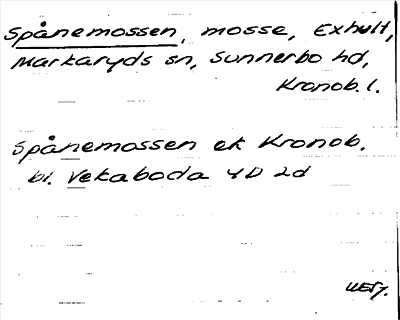 Spånemossen, mosse, Exhult,
Markaryds sn, Sunnerbo hd,
Kronob. l.
Spånemossen ek Kronob.
bl. Vekaboda 4D 2d